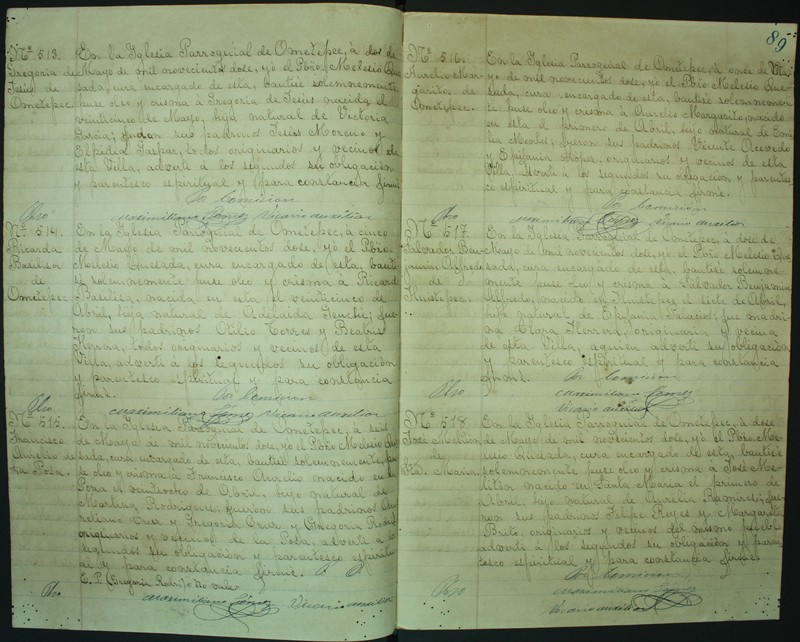 89
Nº 513.
Gregoria de
Jesus de
Ometepec.
En la Iglesia Parroquial de Ometepec, à dos de
Mayo de mil novecientos dose, yo el Pbro. Melesio Que
sada, cura encargado de esta, bautisé solemnemente
puse oleo y crisma à Gregoria de Jesus nacida el
veintiuno de Mayo, hija natural de Victoria
Garcia; fueron sus padrinos Jesus Moreno y
Elpidia Gaspar, todos originarios y vecinos de
esta Villa, advertí à los segundos su obligacion
y parentesco espiritual y para constancia firmé.
Por Comision
Pbro
Maximiliano Gomez Vicario auxiliar
Nº 514.
Ricarda
Basilisa
de
Ometepec
En la Iglesia Parroquial de Ometepec, à cinco
de Mayo de mil novecientos dose, yo el Pbro.
Melesio Quesada, cura encargado de esta, bauti
sé solemnemente puse oleo y crisma à Ricarda
Basilisa, nacida en esta el veinticinco de
Abril, hija natural de Adelaida; fue
ron sus padrinos Otilio Torres y Beatris
todos originarios y vecinos de esta
Villa, advertí à los segundos su obligacion
y parentesco espiritual y para constancia
firmé.
Por Comision
Pbro
Maximiliano Gomez Vicario auxiliar
Nº 515.
Francisco
Aurelio de
La Posa.
En la Iglesia Parroquial de Ometepec, à seis
de Mayo de mil novecientos dose, yo el Pbro Melesio Que
sada, cura encargado de esta, bautisé solemnemente, pu
se oleo y crisma à Francisco Aurelio nacido en la
Posa el veintiocho de Abril, hijo natural de
Rodriguez; fueron sus padrinos Au
reliano Cruz y Gregoria Cruz y Gregoria Rodrí
originarios y vecinos de la Posa, advertí à los
segundos su obligacion y parentesco espiritu
al y para constancia firmé.
E. P. (Gregoria Rodri) No vale
Pbro
Maximiliano Gomez Vicario auxiliar
Nº 516.
Aurelio Mar
garito de
Ometepec.
En la Iglesia Parroquial de Ometepec, à once de Ma
yo de mil novecientos dose, yo el Pbro Melesio Que
sada, cura encargado de esta, bautisé solemnemen
te puse oleo y crisma à Aurelio Margarito, nacido
en esta el primero de Abril, hijo natural de Emi
lia Nicolas; fueron sus padrinos Vicente Acevedo
y Epifania López, originarios y vecinos de esta
Villa, advertí à los segundos su obligacion y parentes
co espiritual y para constancia firmé.
Por Comision
Pbro
Maximiliano Gomez Vicario auxiliar
Nº 517.
Salvador Ben
jamin Alfredo
de
En la Iglesia Parroquial de Ometepec, à dose de
Mayo de mil novecientos dose, yo el Pbro Melesio Que
sada, cura encargado de esta, bautisé solemne
mente puse oleo y crisma à Salvador Benjamin
Alfredo, nacido en el siete de Abril,
hijo natural de Epifania Palacios; fue madri
na Clara Herrera, originaria y vecina
de esta Villa, à quien advertí su obligacion
y parentesco espiritual y para constancia
firmé.
Por Comision
Pbro
Maximiliano Gomez
Vicario auxiliar
Nº 518.
José Meliton
de
Sta. Maria.
En la Iglesia Parroquial de Ometepec, à dose
de Mayo de mil novecientos dose, yo el Pbro Me
lesio Quesada, cura encargado de esta, bautisé
solemnemente puse oleo y crisma à José Me
liton nacido en Santa Maria el primero de
Abril, hijo natural de Aurelia Ramirez; fue
ron sus padrinos Felipe Reyes y Margarita
Brito, originarios y vecinos del mismo pueblo
advertí à los segundos su obligacion y paren
tesco espiritual y para constancia firmé.
Por Comision
Pbro
Maximiliano Gomez
Vicario auxiliar